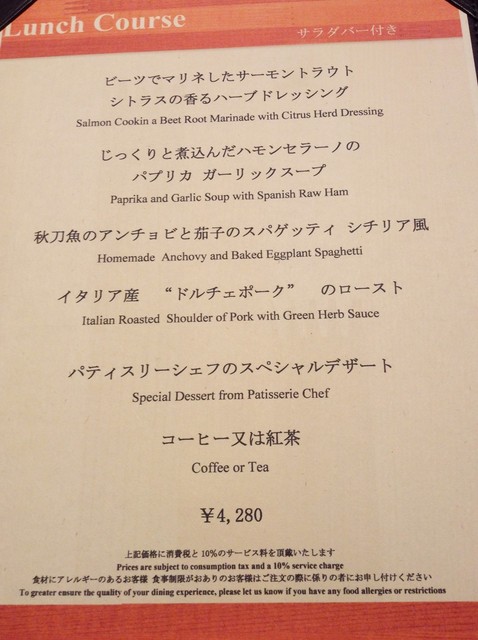 Lunch Course
サラダバー付き
ビーツでマリネしたサーモントラウト
シトラスの香るハーブドレッシング
Salmon Cookin a Beet Root Marinade with Citrus Herd Dressing
じっくりと煮込んだハモンセラーノの
パプリカ ガーリックスープ
Paprika and Garlic Soup with Spanish Raw Ham
秋刀魚のアンチョビと茄子のスパゲッティ シチリア風
Homemade Anchovy and Baked Eggplant Spaghetti
イタリア産 “ドルチェポーク” のロースト
Italian Roasted Shoulder of Pork with Green Herb Sauce
パティスリーシェフのスペシャルデザート
Special Dessert from Patisserie Chef
コーヒー又は紅茶
Coffee or Tea
￥4,280
上記価格に消費税と10%のサービス料を頂戴いたします
Prices are subject to consumption tax and a 10% service charge
食材にアレルギーのあるお客様 食事制限がおありのお客様はご注文の際に係りの者にお申し付けください
To greater ensure the quality of your dining experience, please let us know if you have any food allergies or restrictions